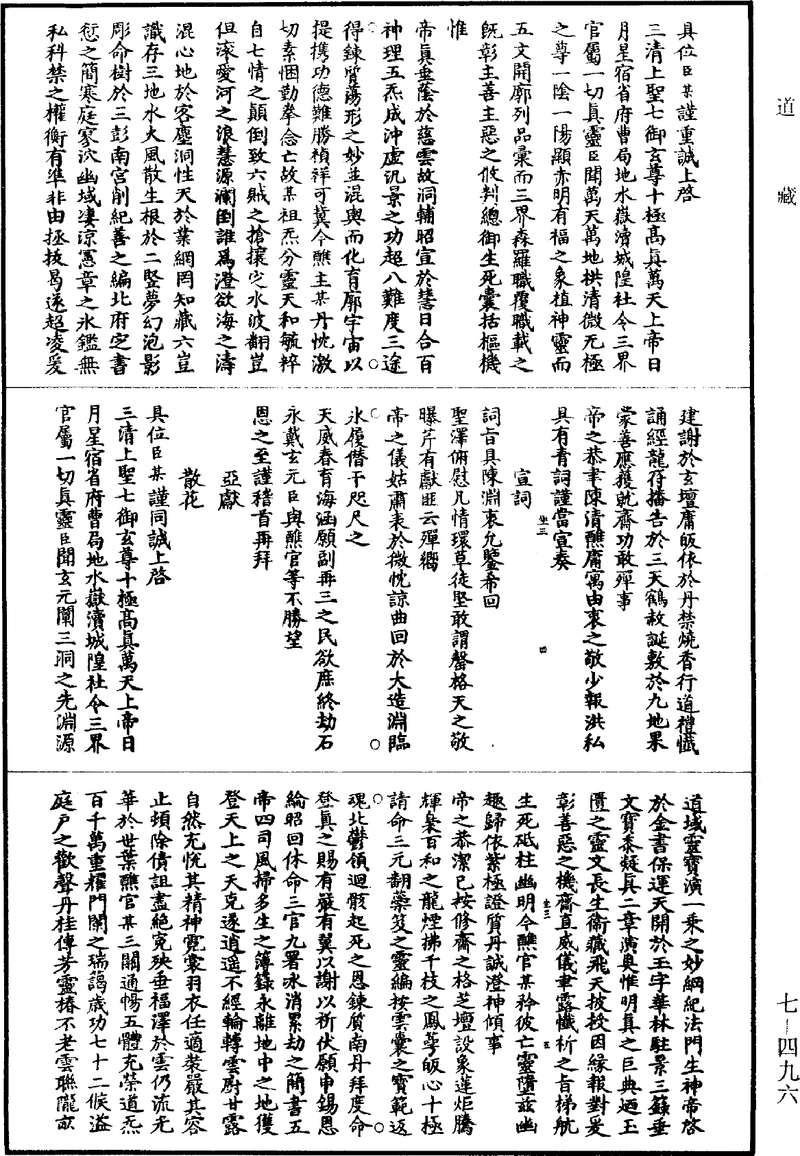 道藏
具位臣某謹重誠上啓
三清上聖七御玄尊十極高眞萬天上帝日
月星宿省府曹局地水嶽瀆城隍社令三界
官屬一切眞靈臣聞萬天萬地拱清微无極
之尊一陰一陽顯亦明有福之象植神靈而
五文開廓列品彙而三界森羅職覆職載之
旣彰主善主惡之攸判總御生死囊括樞機
惟
帝眞垂蔭於慈雲故洞輔昭宣於慧日合百
神理五炁成沖虛沉景之功超八難度三途
得鍊質蕩形之妙並混輿而化育廓宇宙以
提携功德難勝楨祥可冀今醮主某丹忱激
切素悃勤拳念亡故某祖炁分靈天和毓粹
自七情之顛倒致六賊之搶攘定水波翻豈
但滚愛河之浪慧源瀾倒誰爲澄欲海之濤
混心地於客塵洞性天於業網罔知藏六豈
識存三地水火風散生根於二竪夢幻泡影
彫命樹於三彭南宮削紀善之編北府定書
愆之簡寒庭寥泬幽域凄涼憲章之氷鑑無
私科禁之權衡有準非由拯拔曷遂超凌爰
建謝於玄壇庸皈依於丹禁燒香行道禮懺
誦經龍符播告於三天鶴赦誕敷於九地果
蒙善應獲就齋功敢殫事
帝之恭聿陳清醮庸寓由衷之敬少報洪私
具有青詞謹當宣奏
宣詞
坐三
四
詞旨具陳淵衷允鑒希回
聖澤俯慰凡情環草徒堅敢謂罄格天之敬
曝芹有獻匪云殫嚮
帝之儀姑肅表於微忱諒曲回於大造淵臨
氷履僭干咫尺之
天威春育海涵願副再三之民欲庶終劫石
永戴玄元臣與醮官等不勝望
恩之至謹稽首再拜
亞獻
散花
具位臣某謹同誠上啓
三清上聖七御玄尊十極高眞萬天上帝日
月星宿省府曹局地水嶽瀆城隍社令三界
官屬一切眞靈臣聞玄元闡三洞之先淵源
道域靈寶演一乘之妙綱紀法門生神帝啓
於金書保運天開於玉字華林駐景三籙垂
文寶黍凝眞二章演奧惟明眞之巨典廼玉
匱之靈文長生衞藏飛天披挍因緣報對爰
彰善惡之機齋直威儀聿露懺祈之旨梯航
生死砥柱幽明今醮官某衿彼亡靈墮兹幽
趣歸依紫極證質丹誠澄神傾事
帝之恭潔己按修齋之格芝壇設象蓮炬騰
輝裊百和之龍煙拂千枝之鳳蕚皈心十極
請命三元翻蘂笈之靈編按雲囊之寶範返
魂北鬱領迴骸起死之恩鍊質南丹拜度命
登眞之賜有嚴有翼以謝以祈伏願申錫恩
綸昭回休命三官九署氷消累劫之簡書五
帝四司風掃多生之簿録永離地中之地獲
登天上之天克遂逍遥不經輪轉雲厨甘露
自然充悦其精神霓裳羽衣任適裝嚴其容
止頓除債詛盡絶寃殃垂福澤於雲仍流光
華於世葉醮官某三關通暢五體充榮道炁
百千萬重耀門闌之瑞藹歲功七十二候溢
庭戶之歡聲丹桂傳芳靈椿不老雲聯隴畝
坐三
五
七—四九六